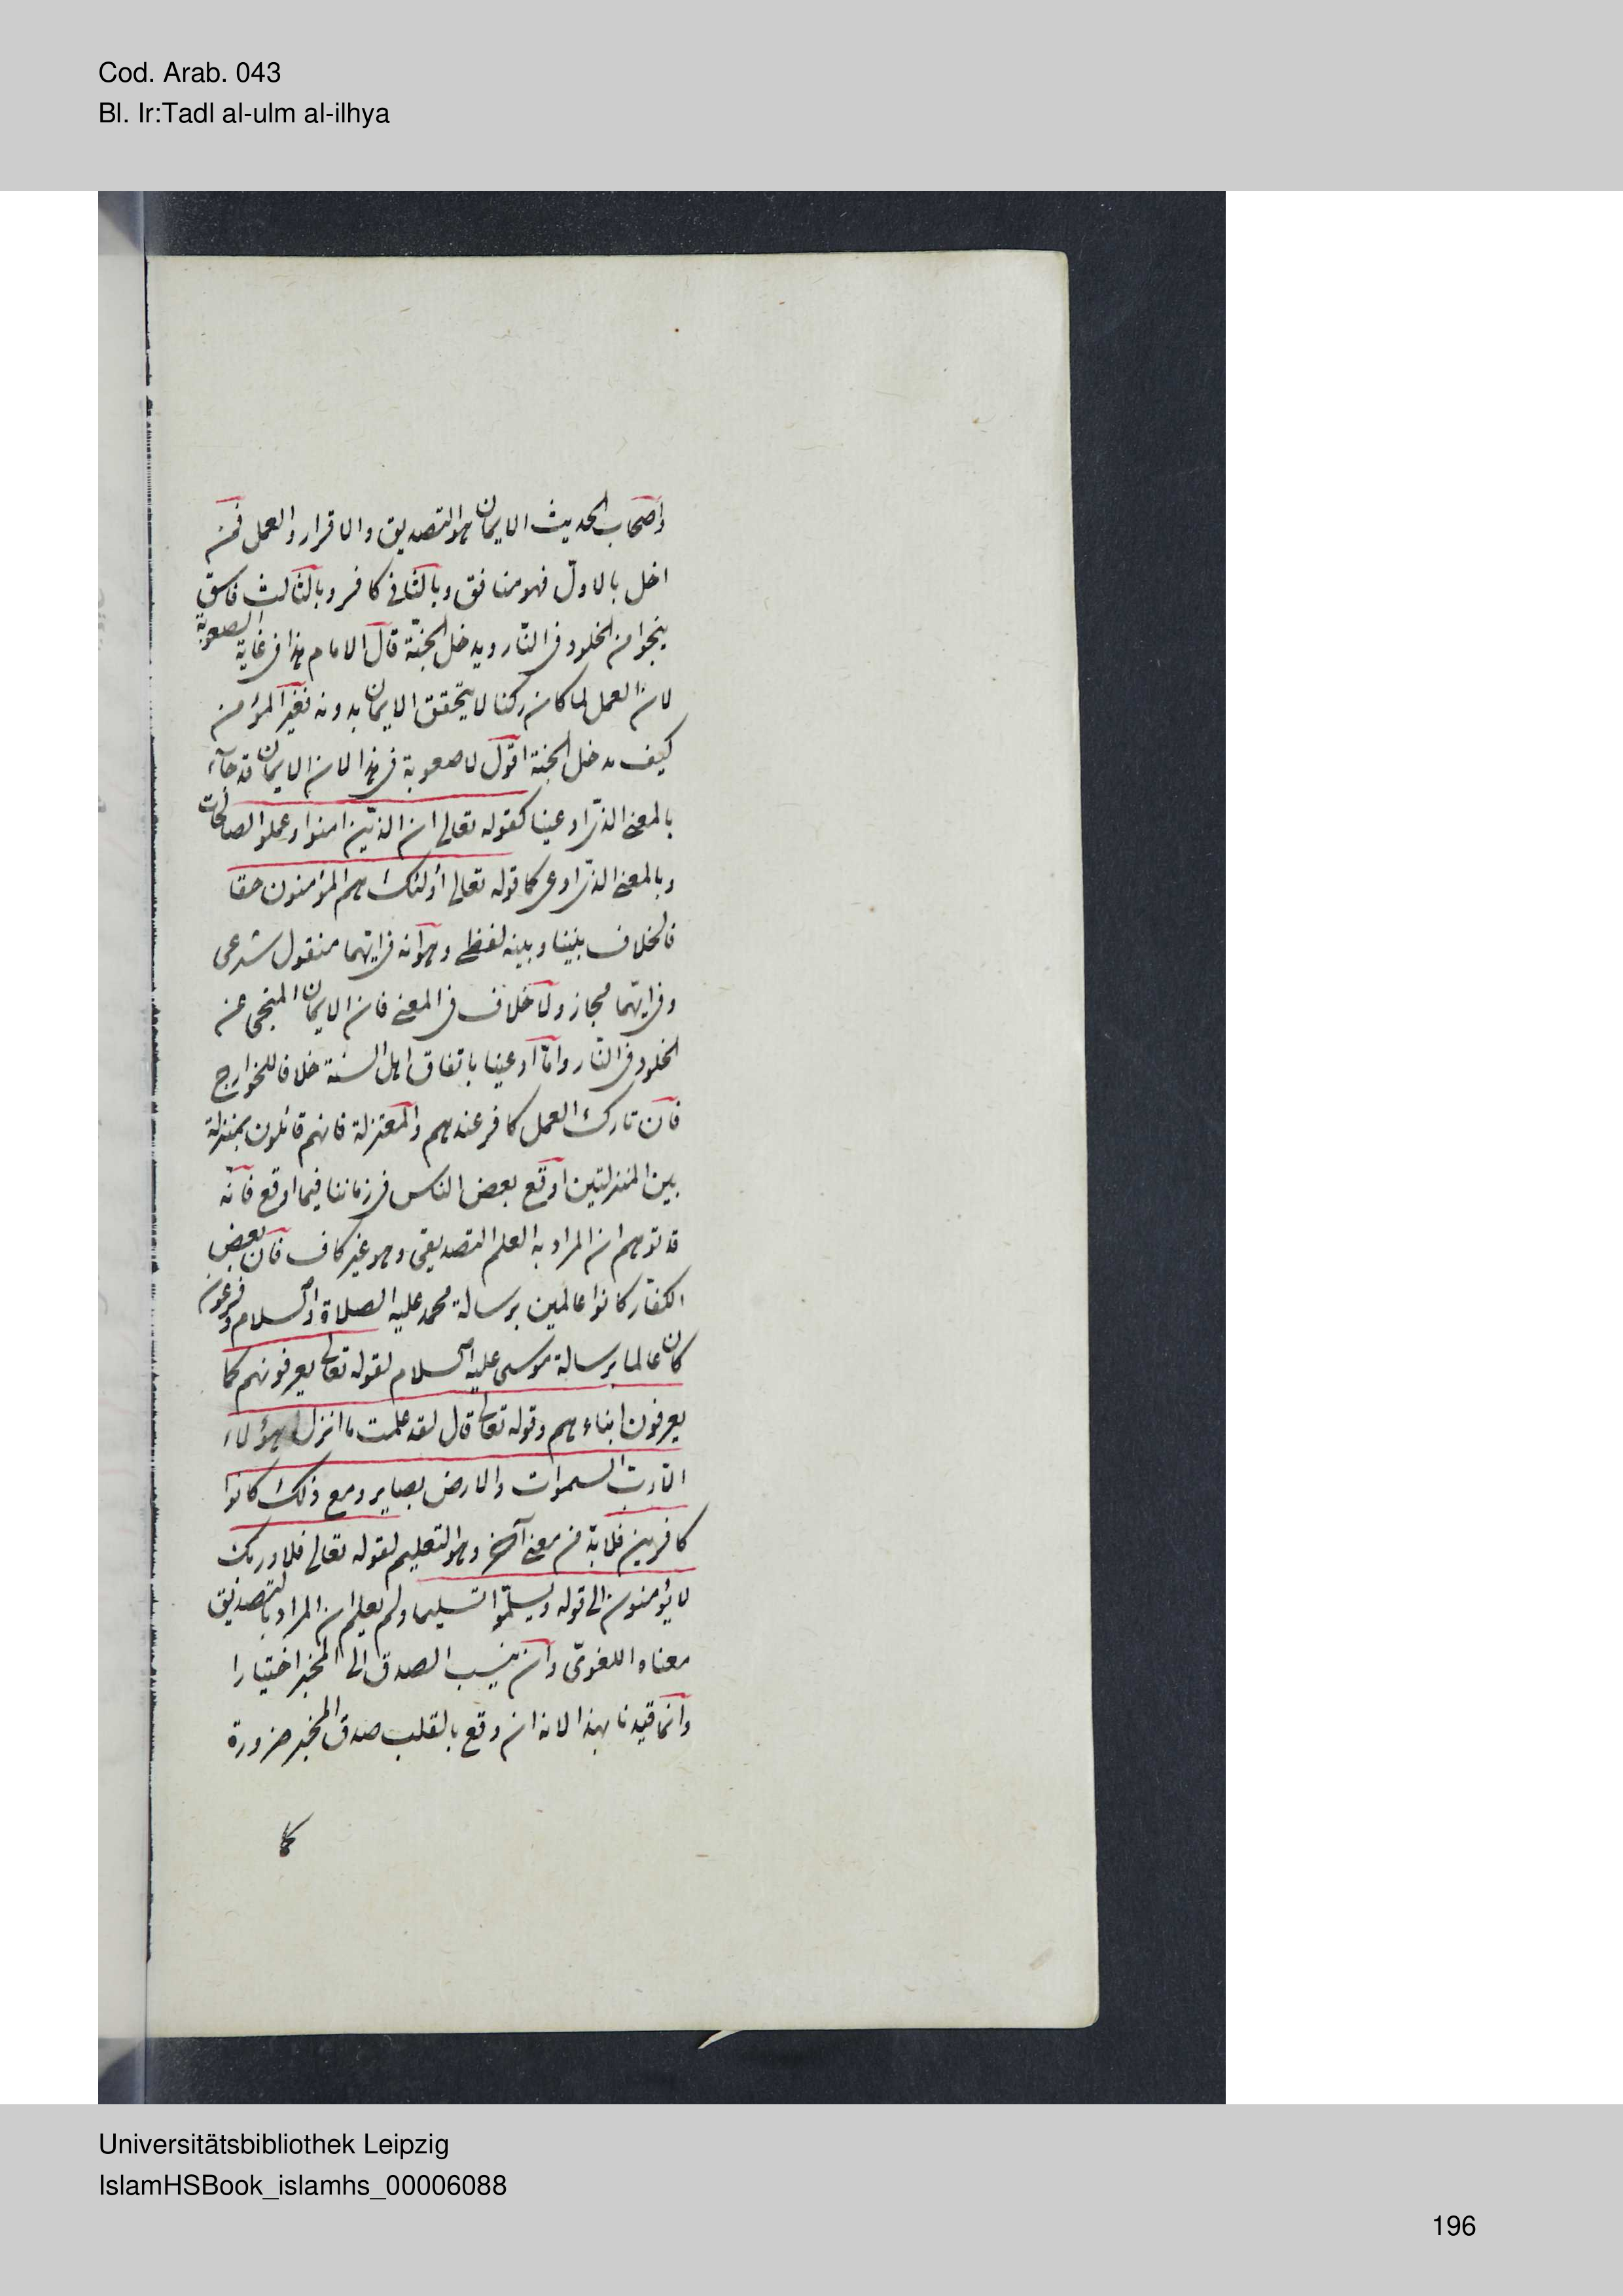 Cod. Arab. 043
Bl. Ir:Tadl al-ulm al-ilhya
واصحاب الحديث الايمان هو التصديق والاقرار والعمل فمن
اخل بالاول فهو منافق وبالثانى كافر وبالثالث فاسق
ينجوا من الخلود فى النار ويدخل الجنّة قال الامام هذا فى غاية الصعوبة
لان العمل لما كان ركنا لا يتحقق الايمان بدونه فغير المؤمن
كيف يدخل الجنة اقول لا صعوبة فى هذا لان الايمان قد جآء
بالمعنى الذى ادعينا كقوله تعالى ان الذين امنوا وعملوا الصالحات
وبالمعنى الذى ادعى كما قوله تعالى أولئك هم المؤمنون حقا
فالخلاف بيننا وبينه لفظى وهو انه فى ايهما منقول شرعى
وفى ايهما مجاز ولا خلاف فى المعنى فان الايمان المنجى عن
الخلود فى النار وامّا ادعينا باتفاق اهل السنة خلافا للخوارج
فان تارك العمل كافر عندهم والمعتزلة فانهم قائلون بمنزلة
بين المنزلتين اوقع بعض الناس فى زماننا فيما اوقع فانه
قد توهم ان المراد به العلم التصديقى وهو غير كاف فان بعض
الكفار كانوا عالمين برسالة محمد عليه الصلاة والسلام وفرعون
كان عالما برسالة موسى عليه السلام لقوله تعالى يعرفونهم كما
يعرفون ابناءهم وقوله تعالى قال لقد علمت ما انزل هؤلاء
الا رب السموات والارض بصاير ومع ذلك كانوا
كافرين فلا بدّ من معنى آخر وهو التعليم لقوله تعالى فلا وربك
لا يؤمنون الى قوله ويسلّموا تسليما ولم يعلم ان المراد بالتصديق
معناه اللغوىّ وان ينسب الصدق الى المخبر اختيارا
وانما قيدنا بهذا لانه ان وقع بالقلب صدق المخبر ضرورة
كما
Universitätsbibliothek Leipzig
IslamHSBook_islamhs_00006088
196